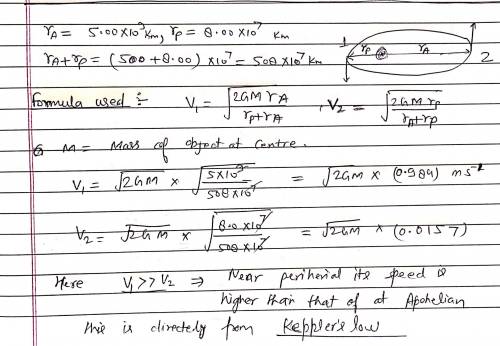 rA = 5.00×10⁹ Km, rp = 8.00×10⁷ Km
rA+rp = (500+8.00)×10⁷ = 508×10⁷ Km
1 rp rA 2
formula used :- V₁ = √(2GM rA / rp+rA) , V₂ = √(2GM rp / rA+rp)
G M = Mass of object at Centre.
V₁ = √2GM × √(5×10⁹ / 508×10⁷) = √2GM × (0.984) ms⁻¹
V₂ = √2GM × √(8.0×10⁷ / 508×10⁷) = √2GM × (0.0157)
Here V₁>>V₂ ⇒ Near periherial its speed is
higher than that of at Aphelian
this is directely from Keppler's low